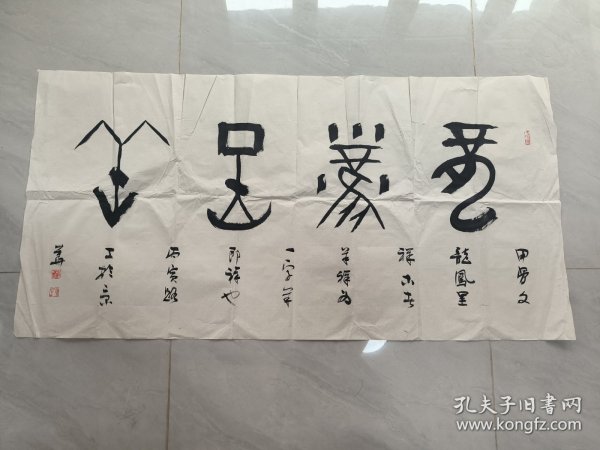 龍鳳呈祥
甲骨文
龍鳳呈
祥古者
羊祥為
一字羊
即祥也
丙寅
于京
孔夫子旧书网
www.kongfz.com